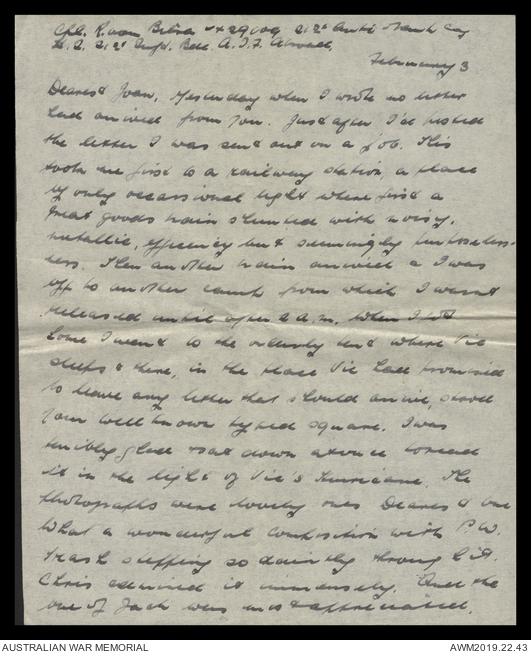 February 3
Dearest Joan, Yesterday when I wrote no letter
had arrived from you. Just after I'd posted
the letter I was sent out on a job. This
took me first to a railway station, a place
of only occasional light where first a
great goods train shunted with noisy,
metallic, efficiency but seemingly purposeless-
ness. Then another train arrived & I was
off to another camp from which I wasn't
released until after 2 a.m. When I got
home I went to the orderly tent where Vic
sleeps & there, in the place Vic had promised
to leave any letter that should arrive, stood
your well known typed square. I was
terribly glad & sat down at once to read
it in the light of Vic's hurricane. The
photographs were lovely ones Dearest & one
What a wonderful composition with P.W.
Trash stepping so daintily through it.
Chris admired it immensely. And the
one of Jack was most appreciated.
AUSTRALIAN WAR MEMORIAL
AWM2019.22.43